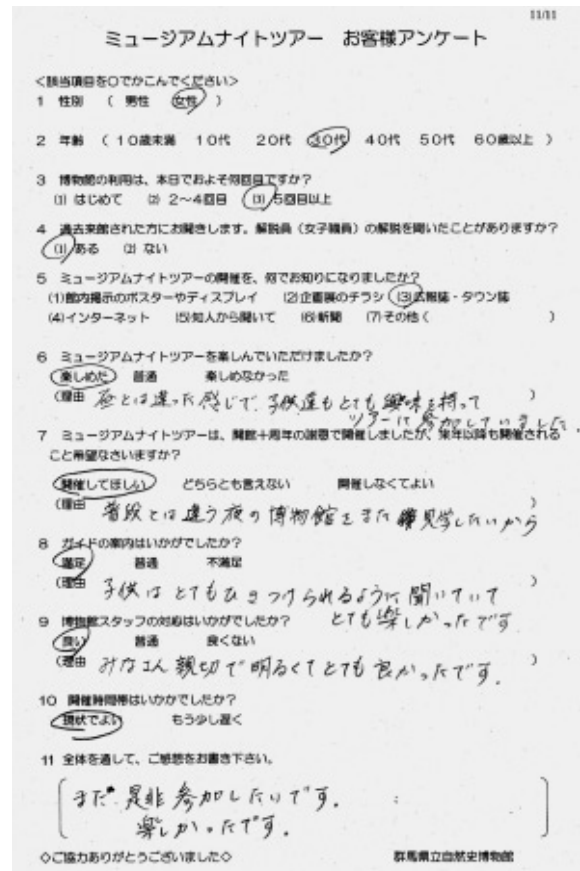 11/11
ミュージアムナイトツアー お客様アンケート
<該当項目を○でかこんでください>
1 性別 ( 男性 女性 )
2 年齢 ( 10歳未満 10代 20代 30代 40代 50代 60歳以上 )
3 博物館の利用は、本日でおよそ何回目ですか?
(1) はじめて (2) 2~4回目 (3) 5回目以上
4 過去来館された方にお聞きします。解説員(女子職員)の解説を聞いたことがありますか?
(1) ある (2) ない
5 ミュージアムナイトツアーの開催を、何でお知りになりましたか?
(1)館内掲示のポスターやディスプレイ (2)企画展のチラシ (3)広報誌・タウン誌
(4)インターネット (5)知人から聞いて (6)新聞 (7)その他( )
6 ミュージアムナイトツアーを楽しんでいただけましたか?
楽しめた 普通 楽しめなかった
(理由 夜とは違った感じで、子供達もとても興味を持って )
ツアーに参加していました。
7 ミュージアムナイトツアーは、開館十周年の謝恩で開催しましたが、来年以降も開催される
こと希望なさいますか?
開催してほしい どちらとも言えない 開催しなくてよい
(理由 普段とは違う夜の博物館をまた見学したいから )
8 ガイドの案内はいかがでしたか?
満足 普通 不満足
(理由 子供はとてもひきつけられるように聞いていて )
とても楽しかったです
9 博物館スタッフの対応はいかがでしたか?
良い 普通 良くない
(理由 みなさん親切で明るくてとても良かったです。 )
10 開催時間帯はいかがでしたか?
現状でよい もう少し遅く
11 全体を通して、ご感想をお書き下さい。
また是非参加したいです。
楽しかったです。
◇ご協力ありがとうございました◇ 群馬県立自然史博物館